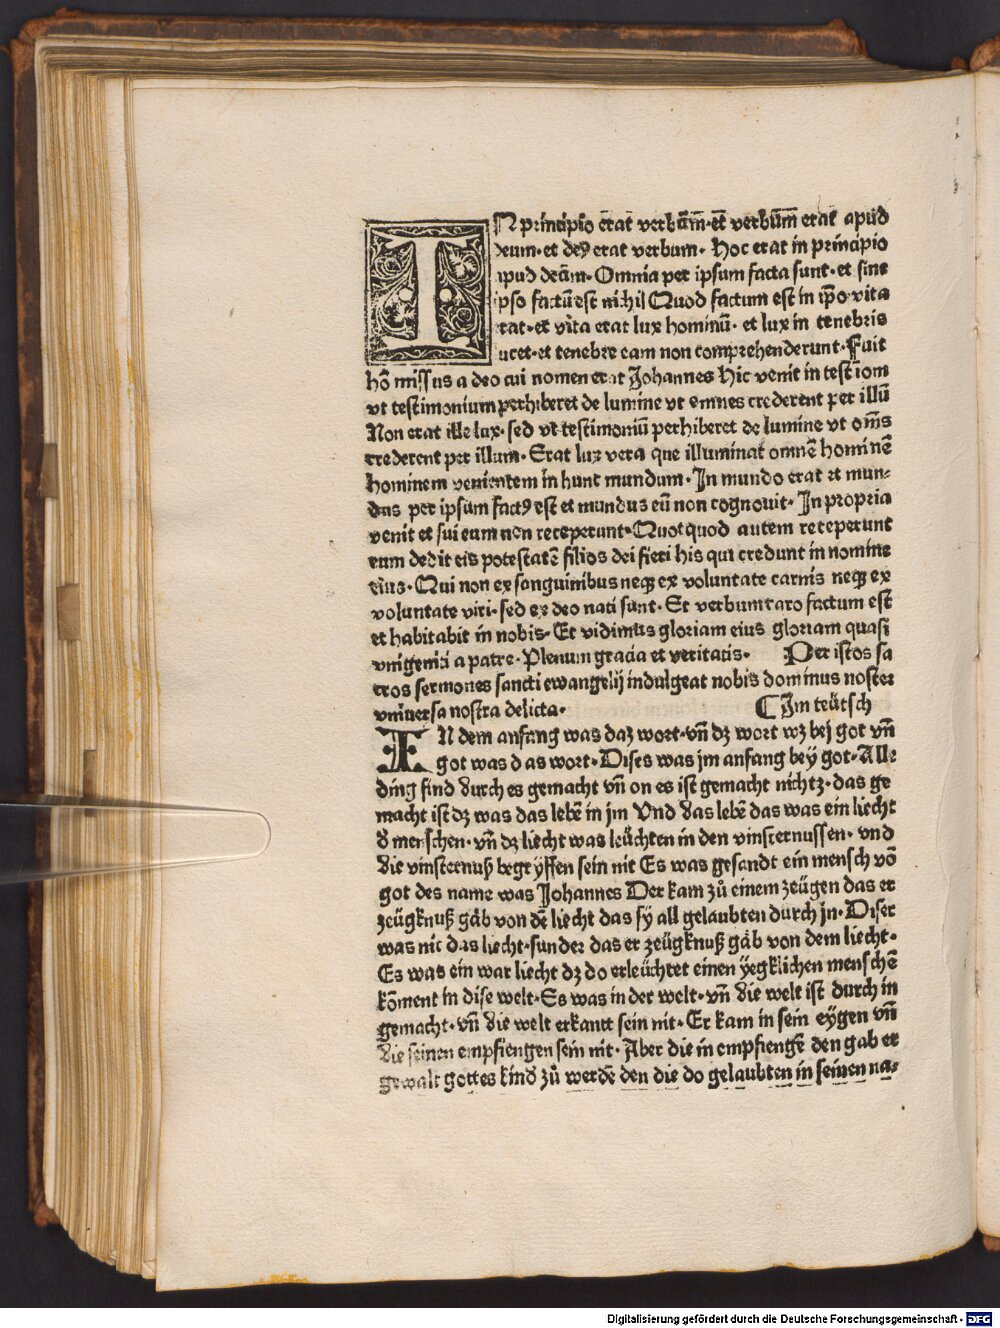 IN principio erat verbūm·et verbūm erat apud
deum·et deꝰ erat verbum· Hoc erat in principio
apud deūm· Omnia per ipsum facta sunt·et sine
ipso factū est nihil Quod factum est in ip̄o vita
erat·et vita erat lux hominū· et lux in tenebris
lucet·et tenebre eam non comprehenderunt·Fuit
hō missus a deo cui nomen erat Johannes Hic venit in testīom
vt testimonium perhiberet de lumine vt omnes crederent per illū
Non erat ille lux· sed vt testimoniū perhiberet de lumine vt om̄s
crederent per illum· Erat lux vera que illuminat omnē hominē
hominem venientem in hunc mundum· In mundo erat et mun-
dus per ipsum factꝰ est et mundus eū non cognouit· In propria
venit et sui eum non receperunt·Quotquod autem receperunt
eum dedit eis potestatē filios dei fieri his qui credunt in nomine
eius·Qui non ex sanguinibus neqꝫ ex voluntate carnis neqꝫ ex
voluntate viri·sed ex deo nati sunt· Et verbum caro factum est
et habitabit in nobis· Et vidimus gloriam eius gloriam quasi
vnigeniti a patre·Plenum gracia et veritatis· Per istos sa
cros sermones sancti ewangelij indulgeat nobis dominus noster
vniuersa nostra delicta· ¶ Im teütsch
IN dem anfang was daz wort·vn̄ dz wort wz bej got vn̄
got was das wort·Dises was jm anfang beÿ got·All-
ding sind durch es gemacht vn̄ on es ist gemacht nichtz·das ge
macht ist dz was das lebē in jm Vnd das lebē das was ein liecht
d᷑ menschen·vn̄ dz liecht was leüchten in den vinsternussen·vnd
die vinsternuß begryffen sein nit Es was gesandt ein mensch vō
got des name was Johannes Der kam zů einem zeügen das er
zeügknuß gäb von dē liecht das sÿ all gelaubten durch jn·Diser
was nit das liecht·sunder das er zeügknuß gäb von dem liecht·
Es was ein war liecht dz do erleüchtet einen ÿegklichen menschē
kōment in dise welt·Es was in der welt·vn̄ die welt ist durch in
gemacht·vn̄ die welt erkant sein nit·Er kam in sein eÿgen vn̄
die seinen empfiengen sein nit· Aber die in empfiengē den gab er
gewalt gottes kind zů werdē den die do gelaubten in seinen na-
Digitalisierung gefördert durch die Deutsche Forschungsgemeinschaft - DFG